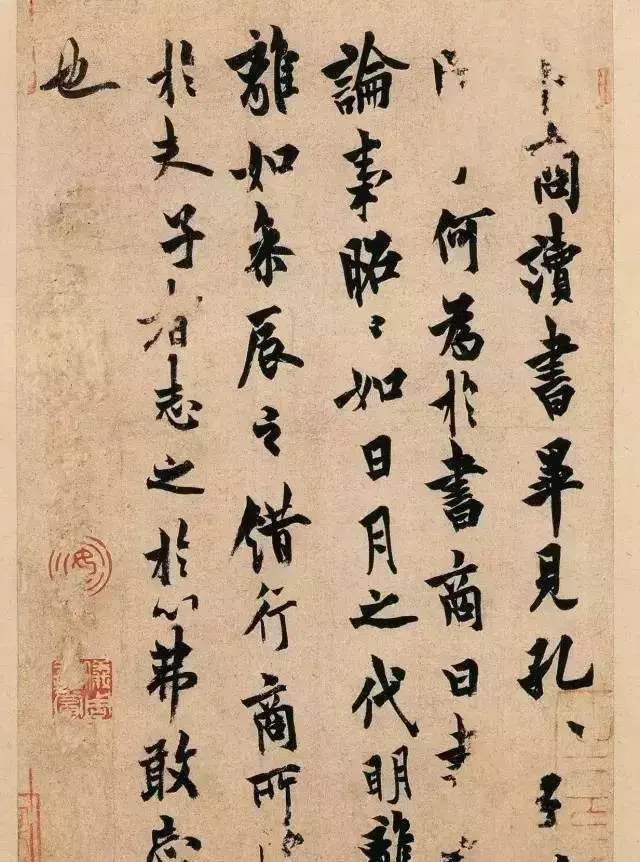 卜商讀書畢見孔〻子
何為於書商曰書
論事昭〻如日月之代明離
離如參辰之錯行商所
於夫子者志之於心弗敢忘
也